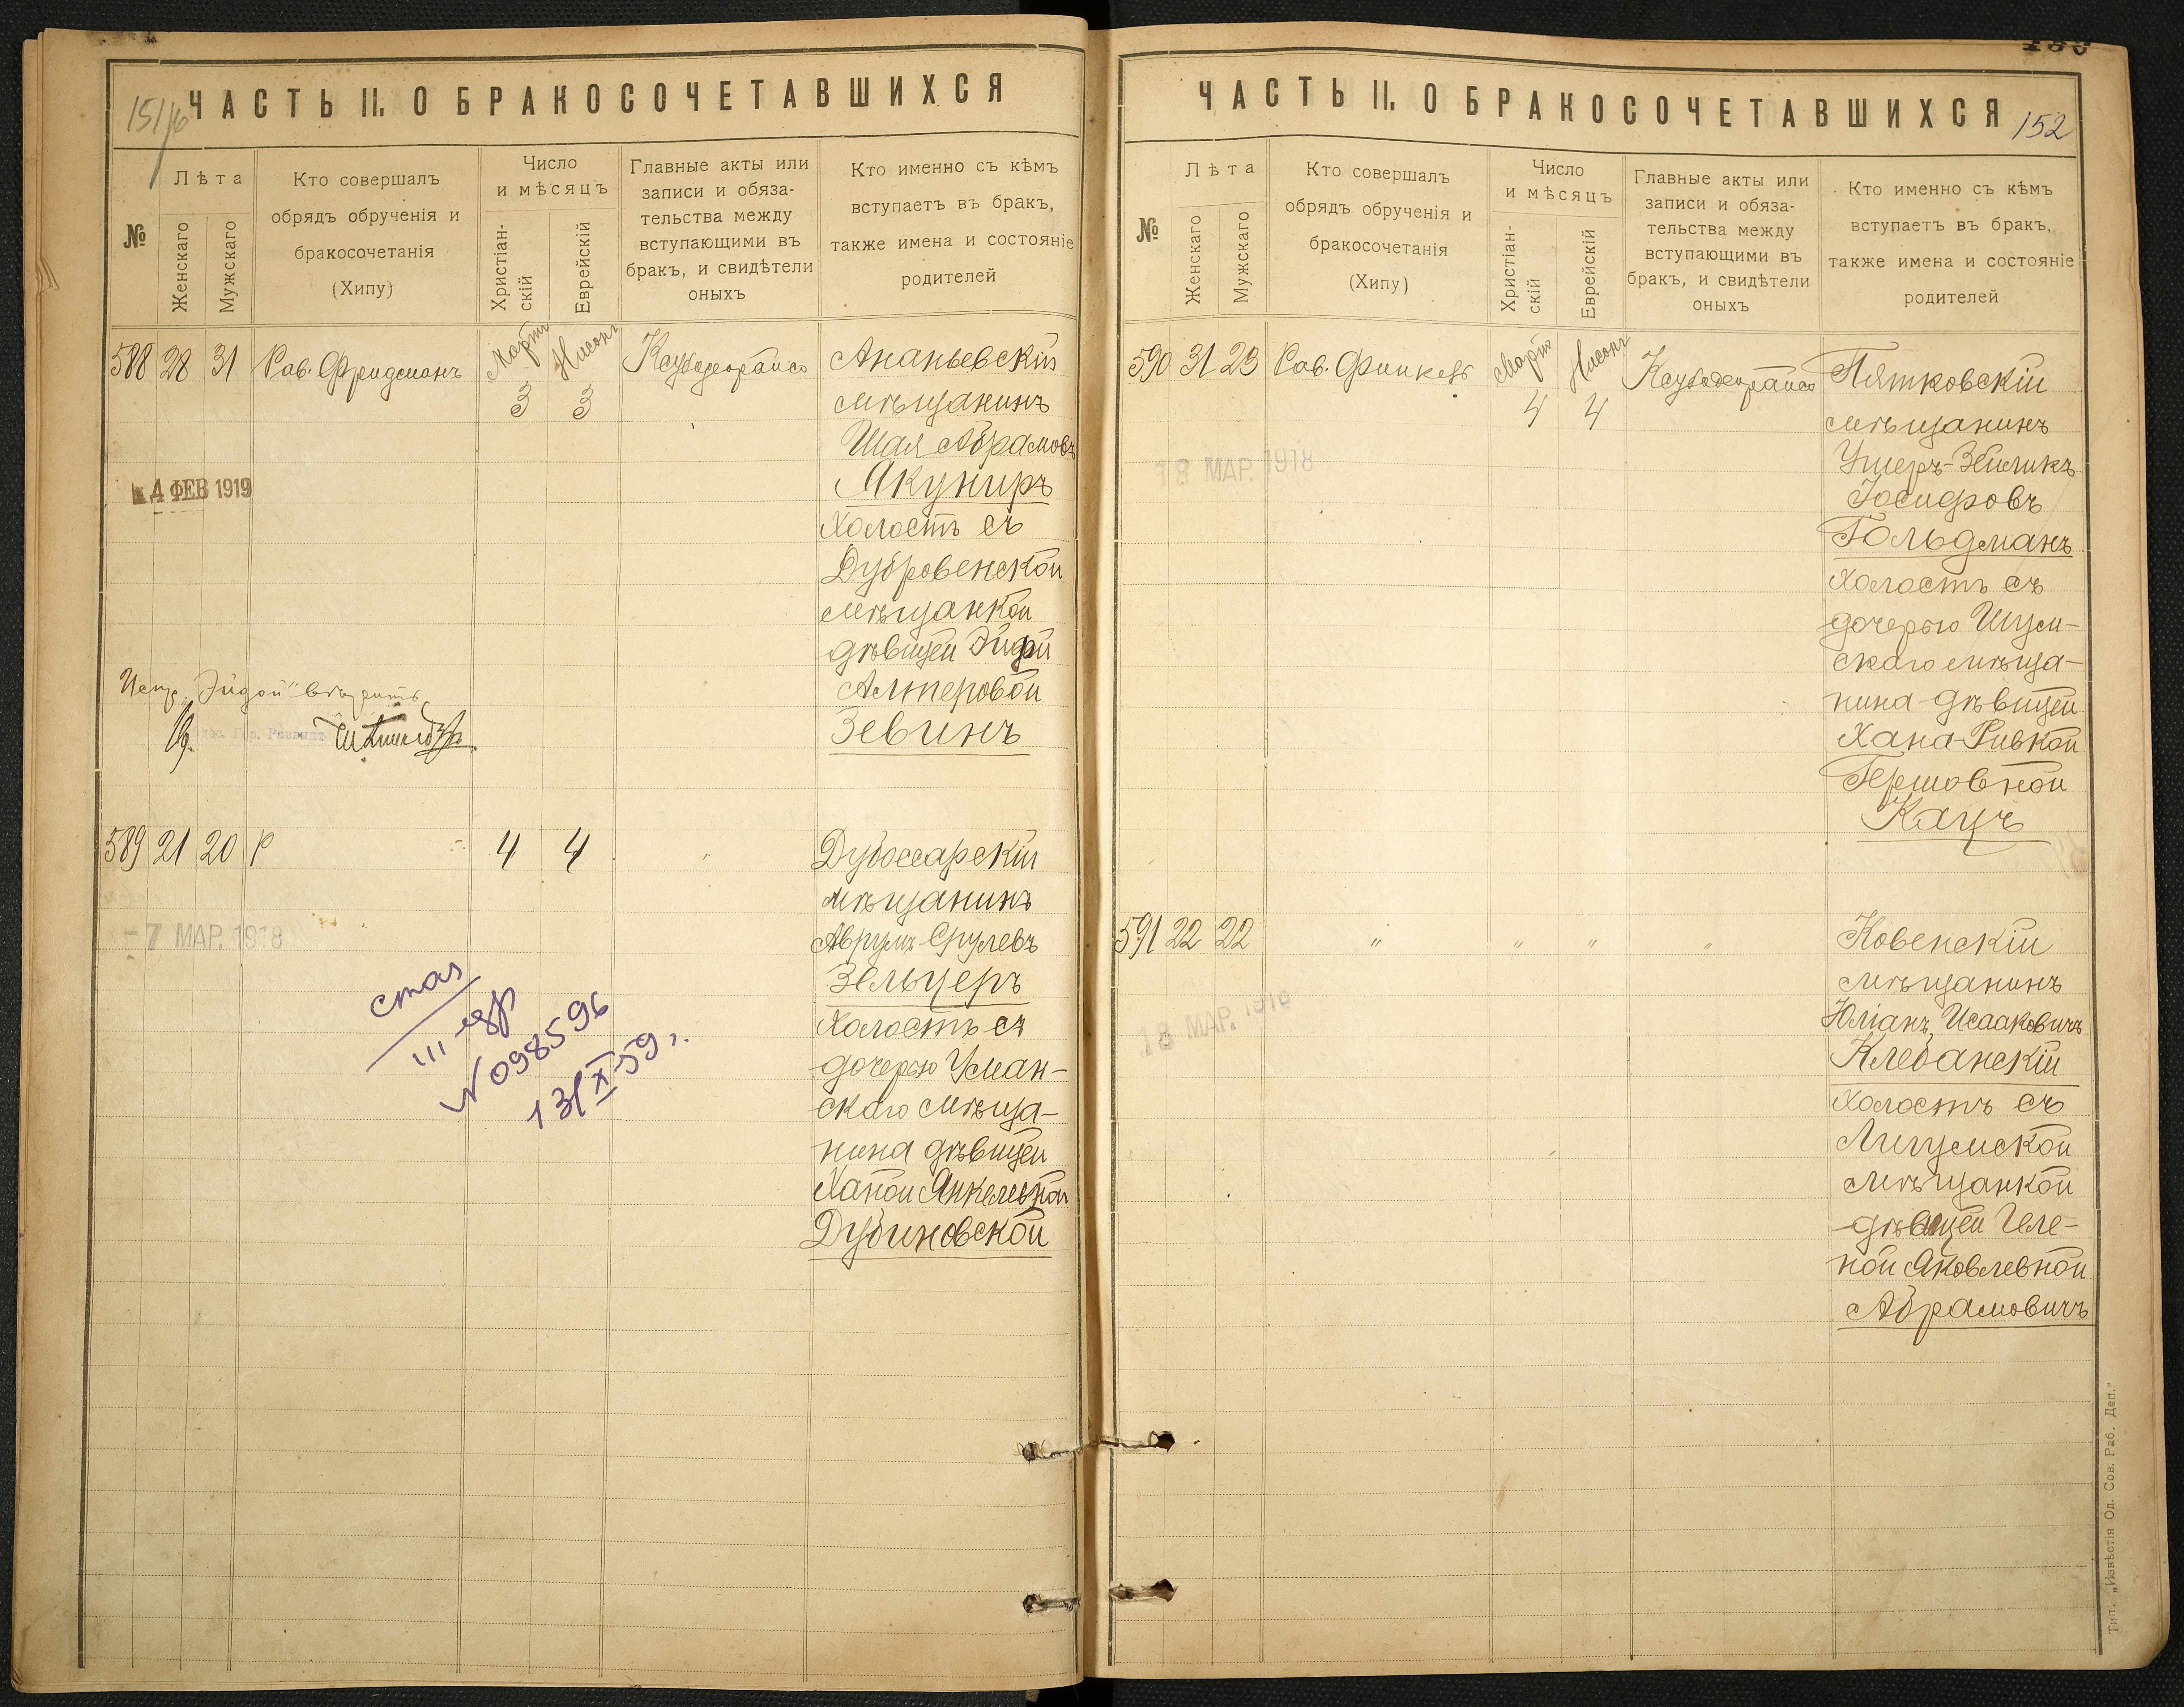 151/б
ЧАСТЬ II. О БРАКОСОЧЕТАВШИХСЯ
№
Лѣта
Женскаго
Мужскаго
Кто совершалъ
обрядъ обрученія и
бракосочетанія
(Хипу)
Число
и мѣсяцъ
Христіан-
скій
Еврейскій
Главные акты или
записи и обяза-
тельства между
вступающими въ
бракъ, и свидѣтели
оныхъ
Кто именно съ кѣмъ
вступаетъ въ бракъ,
также имена и состояніе
родителей
588 28 31 Рав. Фридманъ Мартъ 3 Нисонъ 3
Ананьевскій
мѣщанинъ
Шая Абрамовъ
Якуниръ
холостъ съ
Дубровенской
мѣщанкой
дѣвицей Эйдой
Алтеровой
Зевинъ
4 ФЕВ 1919
Испр. „Эйдой“ вѣрить
589 21 20 Р 4 4 "
Дубоссарскій
мѣщанинъ
Аврумъ Срулевъ
Зельцеръ
холостъ съ
дочерью Уман-
скаго мѣща-
нина дѣвицей
Ханой Янкелевной
Дубиновской
- 7 МАР. 1918
стал
III
N 098596
13/X 59 г.
ЧАСТЬ II. О БРАКОСОЧЕТАВШИХСЯ
152
№
Лѣта
Женскаго
Мужскаго
Кто совершалъ
обрядъ обрученія и
бракосочетанія
(Хипу)
Число
и мѣсяцъ
Христіан-
скій
Еврейскій
Главные акты или
записи и обяза-
тельства между
вступающими въ
бракъ, и свидѣтели
оныхъ
Кто именно съ кѣмъ
вступаетъ въ бракъ,
также имена и состояніе
родителей
590 31 23 Рав. Финкель Мартъ 4 Нисонъ 4
Пятковскій
мѣщанинъ
Ушеръ-Зейликъ
Іосифовъ
Гольдманъ
холостъ съ
дочерью Шум-
скаго мѣща-
нина дѣвицей
Хана-Ривкой
Гершовной
Кацъ
18 МАР. 1918
591 22 22 " " " "
Ковенскій
мѣщанинъ
Юліанъ Исааковичъ
Клебанскій
холостъ съ
Лигумской
мѣщанкой
дѣвицей Геле-
ной Яковлевной
Абрамовичъ
18 МАР. 1919
Тип. „Извѣстія Од. Сов. Раб. Деп.“